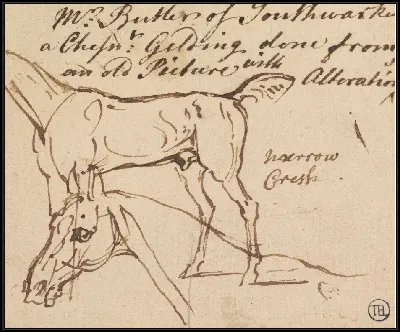 Mr. Butler of Southwark
a Chesn.t Gelding done from
an old Picture with Alteration
narrow
Cresh